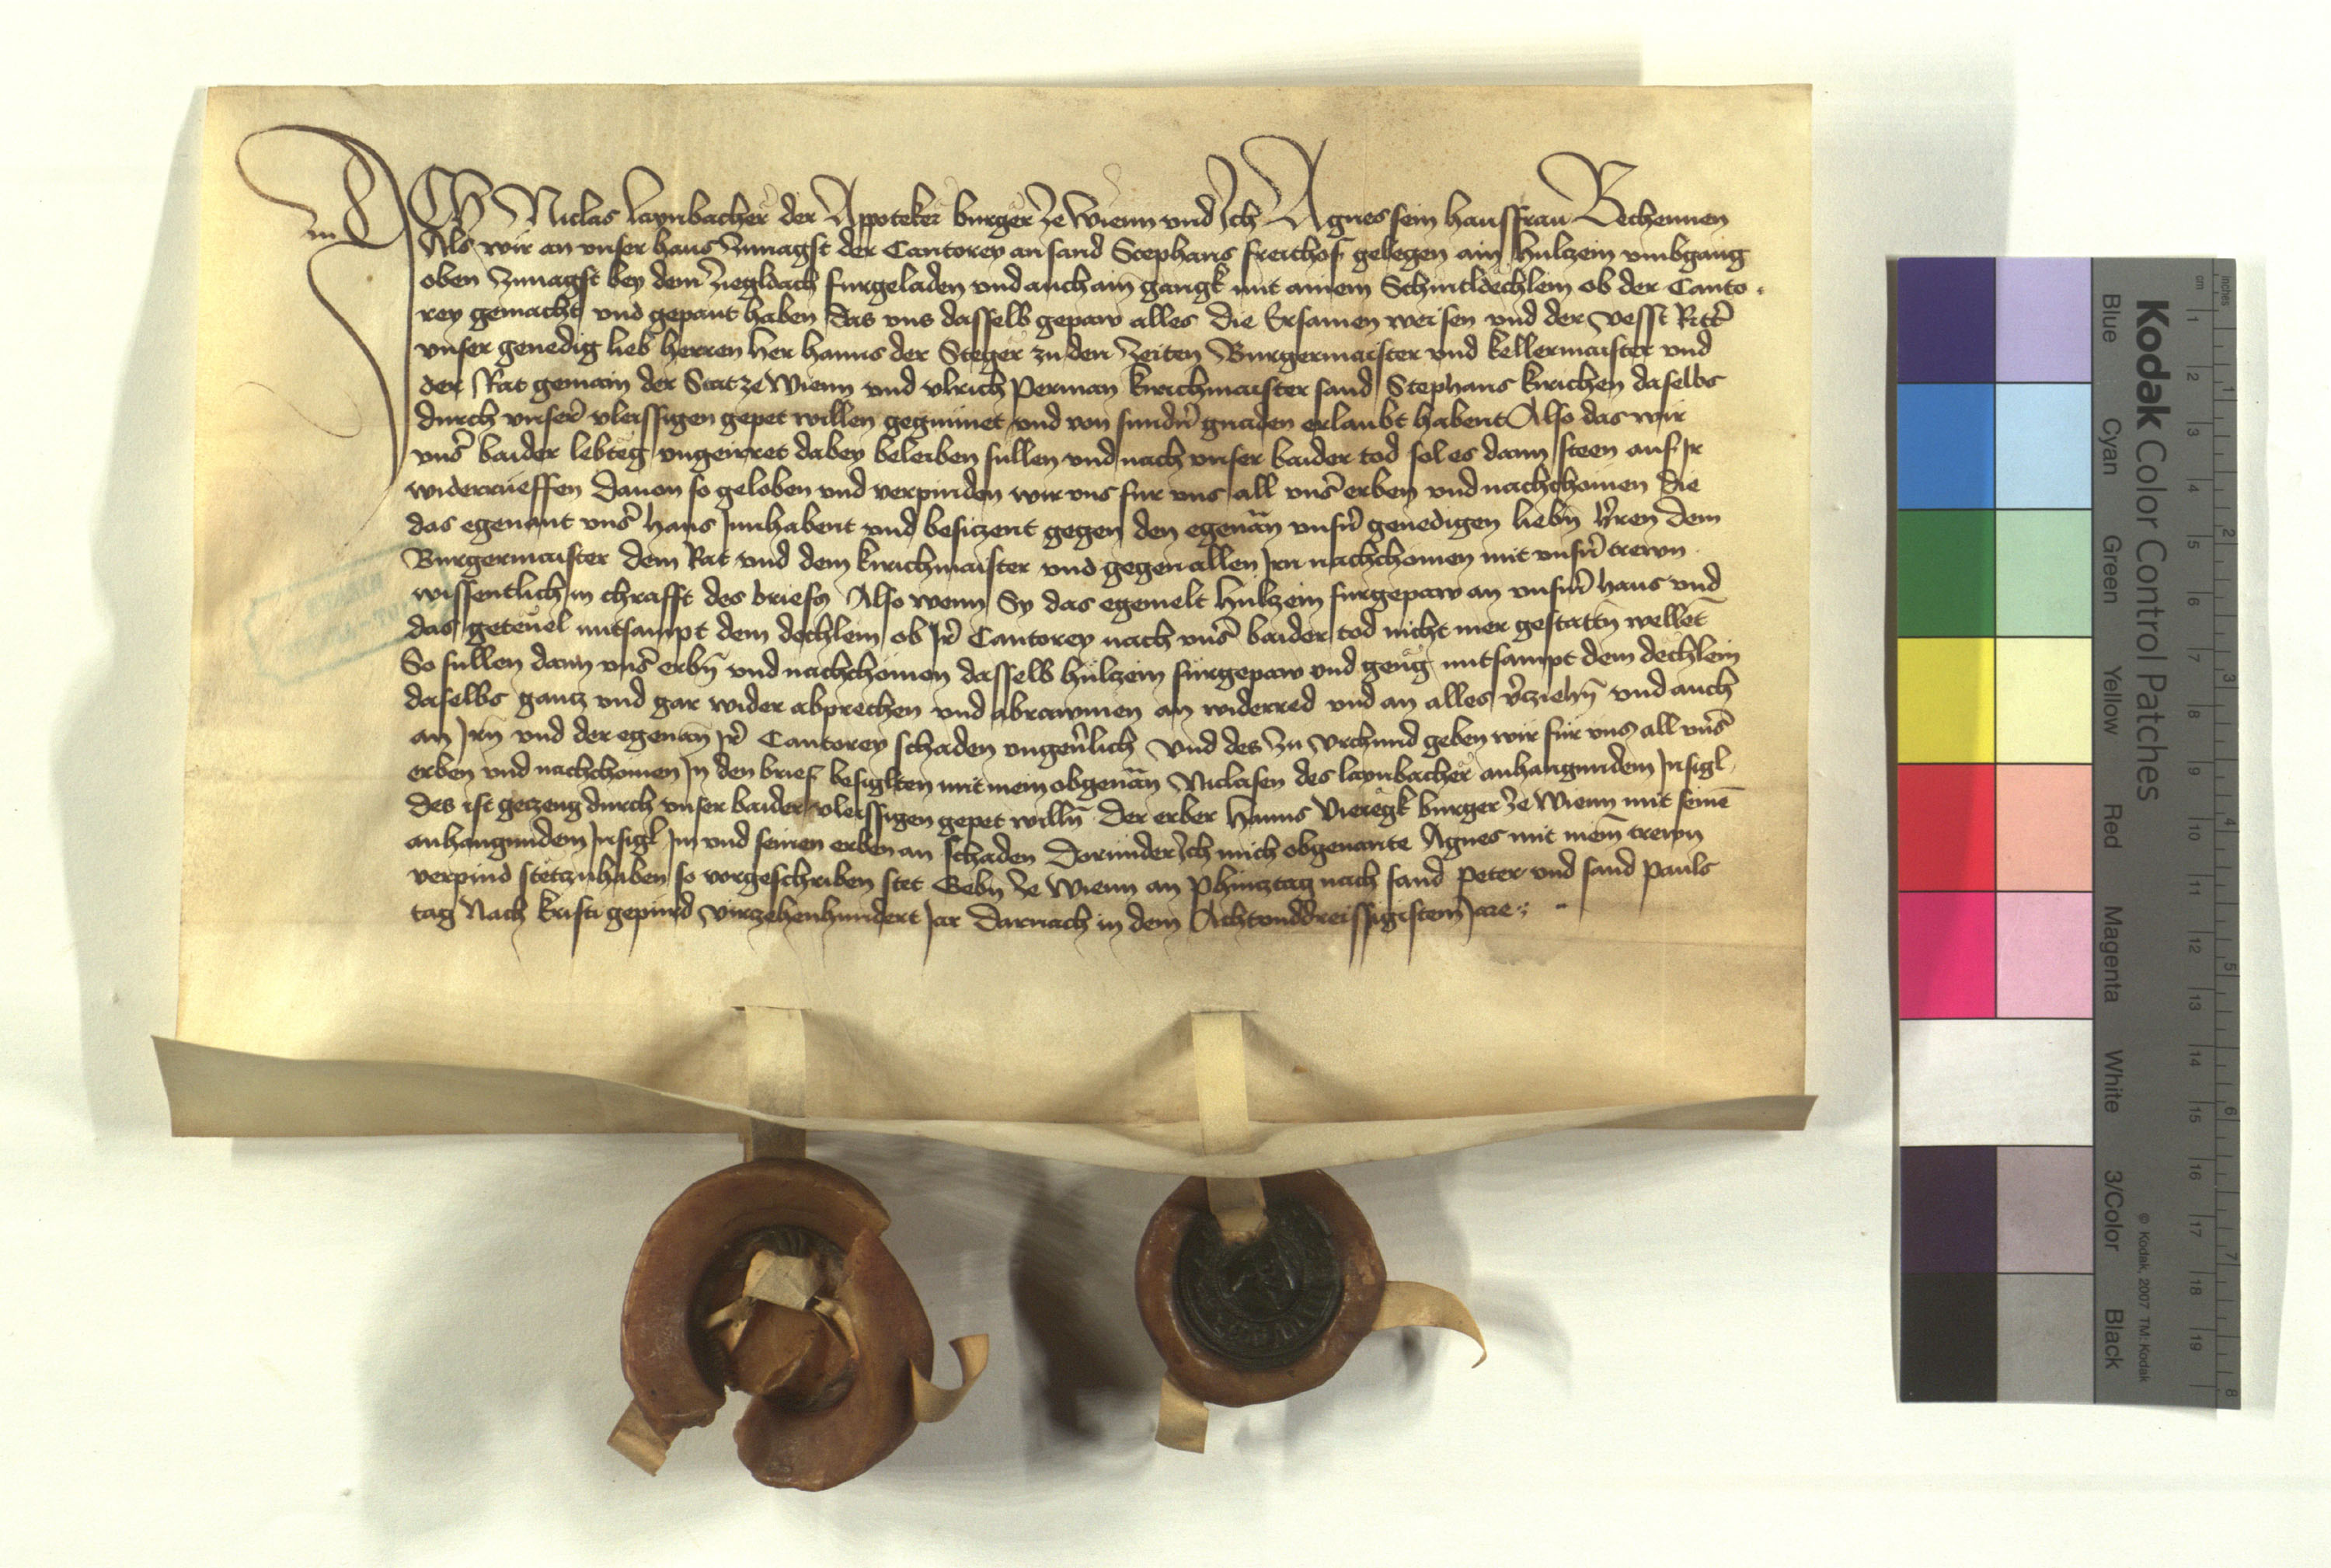 ICH Niclas Laynbacher der Appoteker burger ze Wienn vnd Ich Agnes sein hausfrau Bechennen
Als wir an vnser haus Zunagst der Cantorey an sand Stephans freithof gelegen ain hulzein vmbgang
oben Zunagst bey dem Ziegldach furgeladen vnd auch ain gangk mit ainem Schintldechlein ob der Canto
rey gemacht vnd gepaut haben Das vns dasselb gepaw alles Die Ersamen weisen vnd der vesst Ritt̄
vnser genedig lieb herren her hanns der Steger zu den Zeiten Burgermaister vnd kellermaister vnd
der Rat gemain der Stat ze Wienn vnd Vlrich Perman kirichmaister sand Stephans kirichen daselbs
durch vnserr vleissigen gepet willen gegunnet vnd von sundn̄ gnaden erlaubt habent Also das wir
vns̄ baider lebteg vngeirret dabey beleiben sullen vnd nach vnser baider tod sol es dann steen auf Ir
widerrueffen Dauon so geloben vnd verpinden wir vns fur vns all vns̄ erben vnd nachchomen Die
das egenant vns̄ haus Innhabent vnd besiczent gegen den egenan̄ vnsn̄ genedigen liebn̄ h̄ren Dem
Burgermaister dem Rat vnd dem kirichmaister vnd gegen allen Irn nachchomen mit vnsn̄ trewn
wissentlich in chrafft des briefs Also wenn Sy das egemelt hulzein furgepaw an vnsn̄ haus vnd
das geteuel mitsampt dem dechlein ob Ir̄ Cantorey nach vns̄ baider tod nicht mer gestattn̄ wellet̄
So sullen dann vns̄ erbn̄ vnd nachchomen dasselb hulzein furgepaw vnd geng mitsampt dem dechlein
daselbs gancz vnd gar wider abprechen vnd abrawmen an widerred vnd an alles v̄ziehn̄ vnd auch
an Irn̄ vnd der egenan̄ Ir̄ Cantorey schaden vngeu̅lich Vnd des Zu vrchund geben wir fur vns all vns̄
erben vnd nachchomen In den brief besiglten mit mein obgenan̄ Niclasen des Laynbacher anhangundem Insigl
Des ist geczeug durch vnser baider vleissigen gepet willn̄ Der erber Hanns Vieregk burger ze Wienn mit seinē
anhangundem Insigl Im vnd seinen erben an schaden Dorunder Ich mich obgenante Agnes mit mein̄ trewn
verpind stet zuhaben so vorgeschriben stet Gebn̄ ze Wienn an Phincztag nach sand Peter vnd sand Pauls
tag Nach kristi gepurd Virzehenhundert Jar Darnach in dem Achtvnddreissigistem Jare
Kodak Color Control Patches
Blue Cyan Green Yellow Red Magenta White 3/Color Black
© Kodak, 2007 TM: Kodak
cm 1 2 3 4 5 6 7 8 9 10 11 12 13 14 15 16 17 18 19
inches 1 2 3 4 5 6 7 8